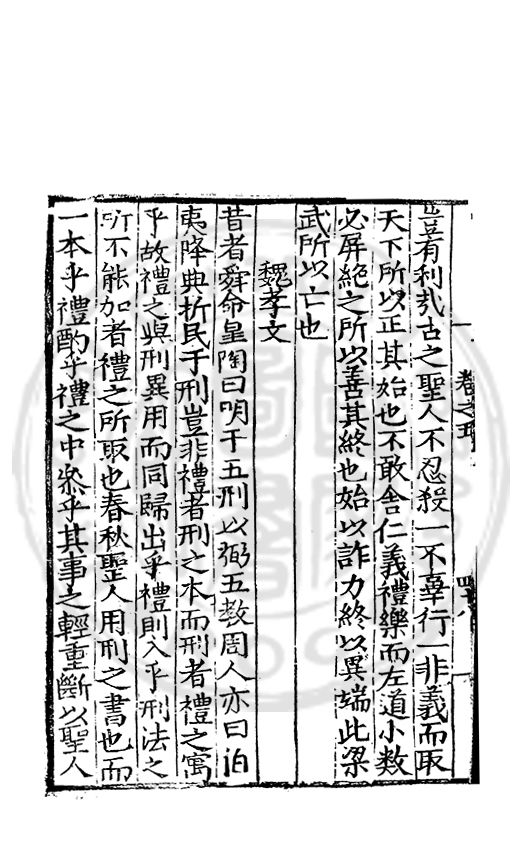 卷之五
四十八
豈有利哉古之聖人不忍殺一不辜行一非義而取
天下所以正其始也不敢舍仁義禮樂而左道小数
必屏絕之所以善其終也始以詐力終以異端此梁
武所以亡也
魏孝文
昔者舜命皐陶曰明于五刑以弼五教周人亦曰伯
夷降典折民于刑豈非禮者刑之本而刑者禮之寓
乎故禮之與刑異用而同歸出乎禮則入乎刑法之
所不能加者禮之所取也春秋聖人用刑之書也而
一本乎禮酌乎禮之中叅乎其事之輕重斷以聖人